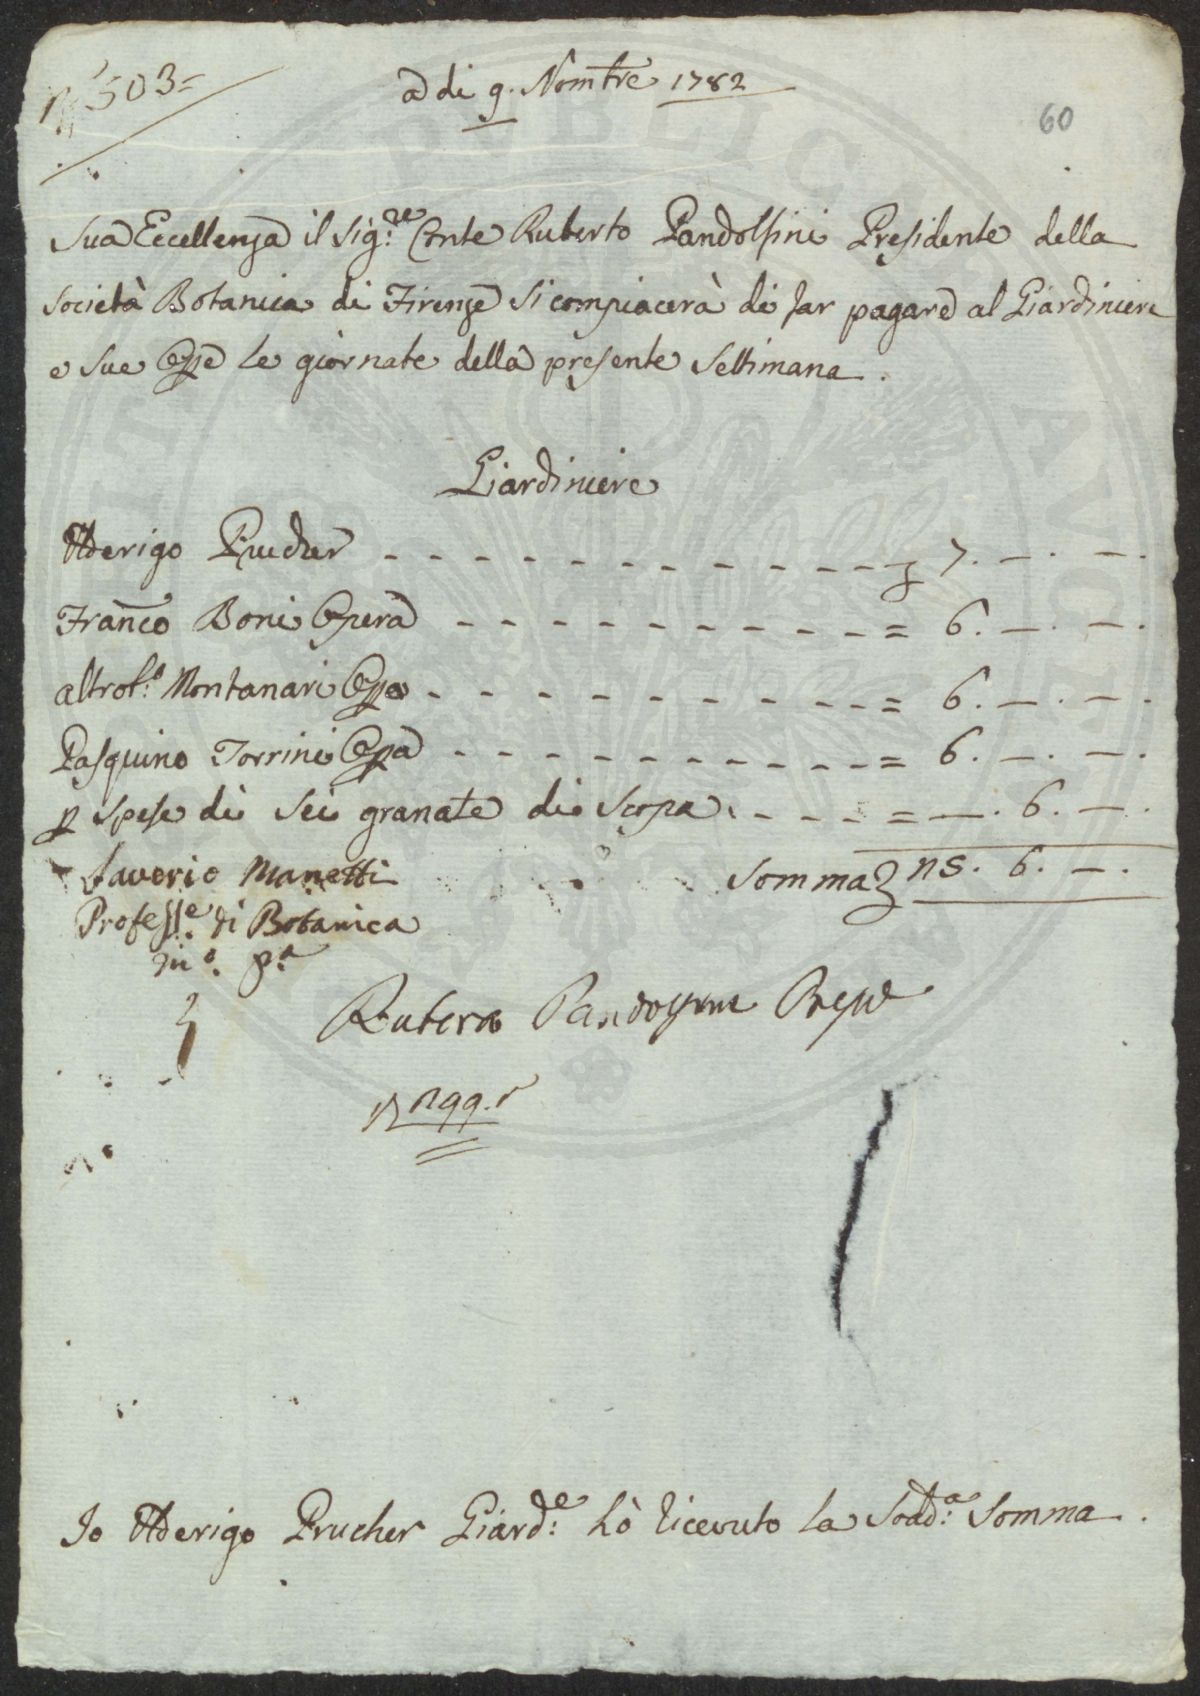 N 503=
a di 9. Nombre 1782
60
Sua Eccellenza il Sig:re Conte Ruberto Pandolfini Presidente della
Società Botanica di Firenze si compiacerà di far pagare al Giardiniere
e sue Oppe le giornate della presente Settimana.
Giardiniere
Aderigo Prucher - - - - - - - - - - - - - 7. —. —.
Franco Boni Opera - - - - - - - - - - - = 6. —. —.
altro f.o Montanari Oppa - - - - - - - - - - - = 6. —. —.
Pasquino Torrini Oppa - - - - - - - - - - - = 6. —. —.
p spese di sei granate di scopa. - - - - = —. 6. —.
Saverio Manetti
Somma 25. 6. —.
Profess.e di Botanica
m.o p.a
Ruberto Pandolfini Preside
Io Aderigo Prucher Giard:e hò ricevuto la Sodd:a Somma.